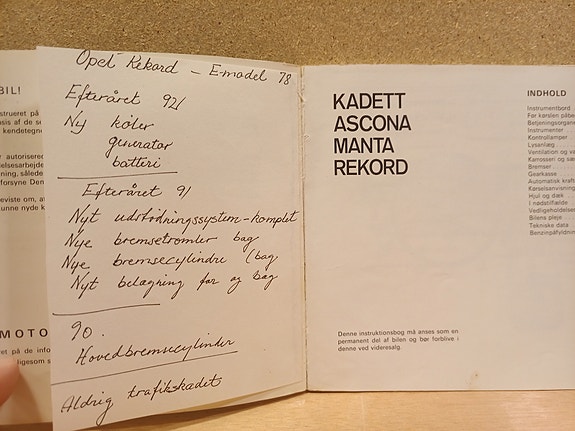 BIL!
MOTO
Opel Rekord - E-model 78
Efteråret 92/
Ny køler
generator
batteri
Efteråret 91
Nyt udstødningssystem - komplet
Nye bremsetromler bag
Nye bremsecylindre (bag
Nyt belægning for og bag
90.
Hovedbremsecylinder
Aldrig trafikskadet
KADETT
ASCONA
MANTA
REKORD
Denne instruktionsbog må anses som en
permanent del af bilen og bør forblive i
denne ved videresalg.
INDHOLD
Instrumentbord
Før kørslen påbe
Betjeningsorgane
Instrumenter
Kontrollamper
Lysanlæg
Ventilation og va
Karrosseri og sæ
Bremser
Gearkasse
Automatisk krafts
Kørselsanvisning
Hjul og dæk
I nødstilfælde
Vedligeholdelses
Bilens pleje
Tekniske data
Benzinpåfyldnin